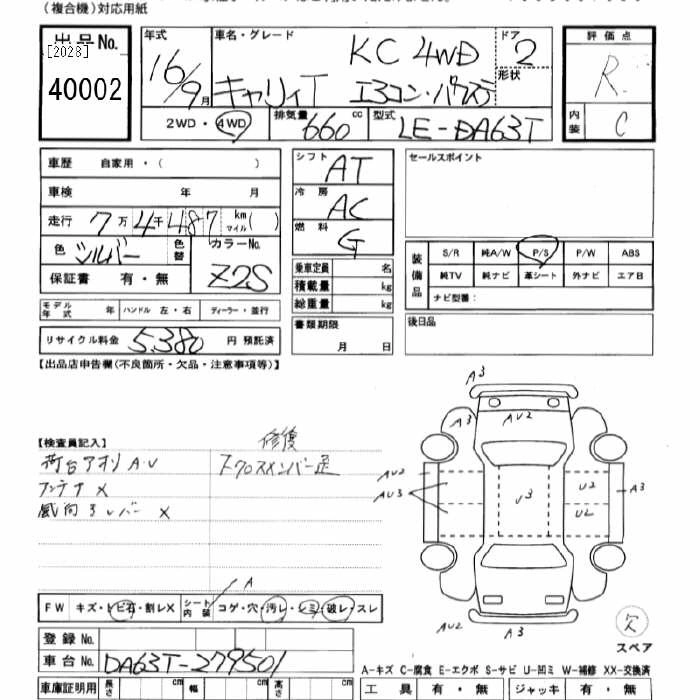 (複合機)対応用紙
出品No.
[2028]
40002
年式
16/9月
車名・グレード
キャリィT
KC 4WD
エアコン・パワステ
ドア
2
形状
2WD・4WD
排気量
660
cc
型式
LE-DA63T
評価点
R
内装
C
車歴 自家用・( )
車検 年 月
走行 7万4千487 km マイル( )
色 シルバー
色替
カラーNo.
Z2S
保証書 有・無
モデル年式 年
ハンドル 左・右
ディーラー・並行
リサイクル料金 5,380 円 預託済
シフト
AT
冷房
AC
燃料
G
乗車定員 名
積載量 kg
総重量 kg
書類期限
月 日
セールスポイント
装備品
S/R 純A/W P/S P/W ABS
純TV 純ナビ 革シート 外ナビ エアB
ナビ型番:
後日品
【出品店申告欄(不良箇所・欠品・注意事項等)】
【検査員記入】
荷台アオリ A・U
アンテナ X
風向きレバー X
修復
F-クロスメンバー
A3
A3
AU2
AU2
AU3
U3
U2
U2
A3
AU2
A3
A
FW キズ・トビ石・割レX
シート内装 コゲ・穴・汚レ・シミ・破レ・スレ
登録No.
車台No.
DA63T-279501
車庫証明用 長さ cm 幅 cm 高さ cm
欠
スペア
A-キズ C-腐食 E-エクボ S-サビ U-凹ミ W-補修 XX-交換済
工具 有・無 ジャッキ 有・無